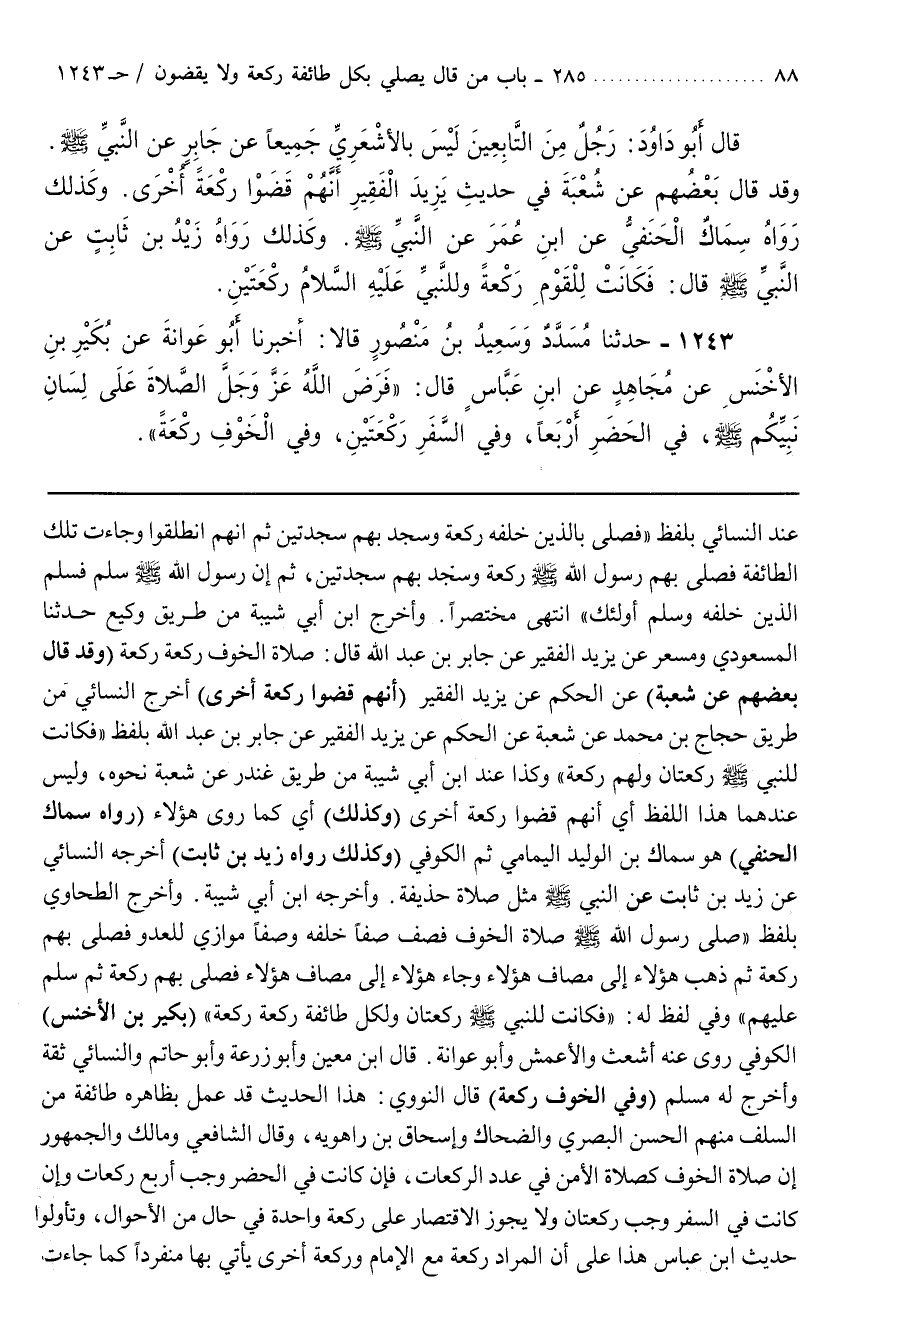 ٨٨ ..................... ٢٨٥ ـ باب من قال يصلي بكل طائفة ركعة ولا يقضون / حـ ١٢٤٣
قال أَبُو دَاوُدَ: رَجُلٌ مِنَ التَّابِعِينَ لَيْسَ بالأشْعَرِيِّ جَمِيعاً عن جَابِرٍ عن النَّبيِّ ﷺ.
وقد قال بَعْضُهم عن شُعْبَةَ في حديثِ يَزِيدَ الْفَقِيرِ أَنَّهُمْ قَضَوْا ركْعَةً أُخْرَى. وكَذلك
رَوَاهُ سِمَاكٌ الْحَنَفيُّ عن ابنِ عُمَرَ عن النَّبيِّ ﷺ. وكَذلك رَوَاهُ زَيْدُ بن ثَابِتٍ عن
النَّبيِّ ﷺ قال: فَكَانَتْ لِلْقَوْمِ رَكْعَةً وللنَّبيِّ عَلَيْهِ السَّلامُ ركْعَتَيْنِ.
١٢٤٣ ـ حدثنا مُسَدَّدٌ وَسَعِيدُ بنُ مَنْصُورٍ قالا: أخبرنا أَبُو عَوانةَ عن بُكَيْرِ بنِ
الأخْنَسِ عن مُجَاهِدٍ عن ابنِ عَبَّاسٍ قال: «فَرَضَ اللَّهُ عَزَّ وَجَلَّ الصَّلاةَ عَلَى لِسَانِ
نَبِيِّكُم ﷺ، في الحَضَرِ أَرْبَعاً، وفي السَّفَرِ رَكْعَتَيْنِ، وفي الْخَوْفِ ركْعَةً».
عند النسائي بلفظ «فصلى بالذين خلفه ركعة وسجد بهم سجدتين ثم انهم انطلقوا وجاءت تلك
الطائفة فصلى بهم رسول الله ﷺ ركعة وسجد بهم سجدتين، ثم إن رسول الله ﷺ سلم فسلم
الذين خلفه وسلم أولئك» انتهى مختصراً. وأخرج ابن أبي شيبة من طريق وكيع حدثنا
المسعودي ومسعر عن يزيد الفقير عن جابر بن عبد الله قال: صلاة الخوف ركعة ركعة (وقد قال
بعضهم عن شعبة) عن الحكم عن يزيد الفقير (أنهم قضوا ركعة أخرى) أخرج النسائي من
طريق حجاج بن محمد عن شعبة عن الحكم عن يزيد الفقير عن جابر بن عبد الله بلفظ «فكانت
للنبي ﷺ ركعتان ولهم ركعة» وكذا عند ابن أبي شيبة من طريق غندر عن شعبة نحوه، وليس
عندهما هذا اللفظ أي أنهم قضوا ركعة أخرى (وكذلك) أي كما روى هؤلاء (رواه سماك
الحنفي) هو سماك بن الوليد اليمامي ثم الكوفي (وكذلك رواه زيد بن ثابت) أخرجه النسائي
عن زيد بن ثابت عن النبي ﷺ مثل صلاة حذيفة. وأخرجه ابن أبي شيبة. وأخرج الطحاوي
بلفظ «صلى رسول الله ﷺ صلاة الخوف فصف صفاً خلفه وصفاً موازي للعدو فصلى بهم
ركعة ثم ذهب هؤلاء إلى مصاف هؤلاء وجاء هؤلاء إلى مصاف هؤلاء فصلى بهم ركعة ثم سلم
عليهم» وفي لفظ له: «فكانت للنبي ﷺ ركعتان ولكل طائفة ركعة ركعة» (بكير بن الأخنس)
الكوفي روى عنه أشعث والأعمش وأبو عوانة. قال ابن معين وأبو زرعة وأبو حاتم والنسائي ثقة
وأخرج له مسلم (وفي الخوف ركعة) قال النووي: هذا الحديث قد عمل بظاهره طائفة من
السلف منهم الحسن البصري والضحاك وإسحاق بن راهويه، وقال الشافعي ومالك والجمهور
إن صلاة الخوف كصلاة الأمن في عدد الركعات، فإن كانت في الحضر وجب أربع ركعات وإن
كانت في السفر وجب ركعتان ولا يجوز الاقتصار على ركعة واحدة في حال من الأحوال، وتأولوا
حديث ابن عباس هذا على أن المراد ركعة مع الإمام وركعة أخرى يأتي بها منفرداً كما جاءت